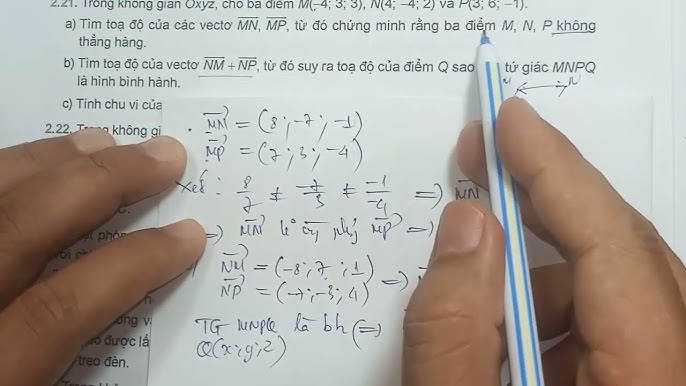 2.21. Trong không gian Oxyz, cho ba điểm M(–4; 3; 3), N(4; –4; 2) và P(3; 6; –1).
a) Tìm toạ độ của các vectơ MN, MP, từ đó chứng minh rằng ba điểm M, N, P không
thẳng hàng.
b) Tìm toạ độ của vectơ NM + NP, từ đó suy ra toạ độ của điểm Q sao tứ giác MNPQ
là hình bình hành.
c) Tính chu vi của
2.22. không gi
MN = (8; -7; -1)
MP = (7; 3; -4)
Xét: 8/7 ≠ -7/3 ≠ -1/-4 => MN
=> MN MP =>
NM = (-8; 7; 1)
NP = (-7; -3; 4) =>
TG MNPQ là bh <=>
Q(x; y; z)
M N
phòn
với chi
ông v
ào được lắ
treo đèn.